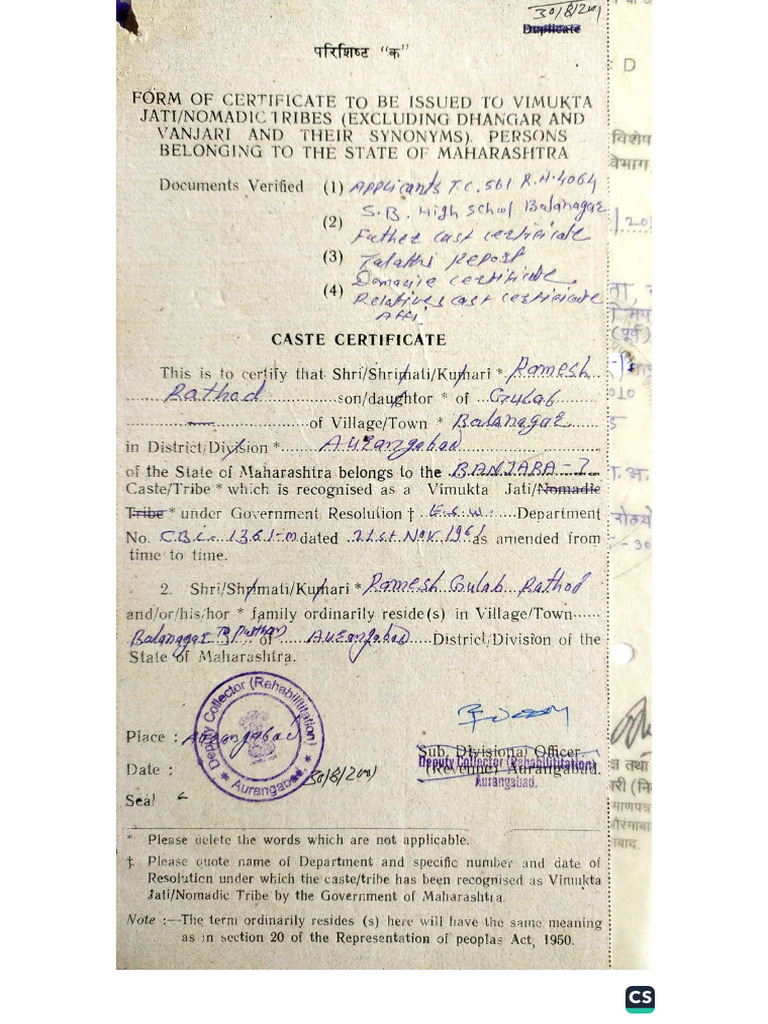 30/8/2001
Duplicate
परिशिष्ट "क"
FORM OF CERTIFICATE TO BE ISSUED TO VIMUKTA
JATI/NOMADIC TRIBES (EXCLUDING DHANGAR AND
VANJARI AND THEIR SYNONYMS). PERSONS
BELONGING TO THE STATE OF MAHARASHTRA
Documents Verified (1) Applicants T.C. 561 R.N. 4064
S.B. High School Balanagar
(2) Father cast certificate
(3) Talathi Report
Domacile certificate
(4) Relatives cast certificate
Affi.
CASTE CERTIFICATE
This is to certify that Shri/Shrimati/Kumari * Ramesh
Rathod son/daughtor * of Gulab
of Village/Town * Balanagar
in District/Division * Aurangabad
of the State of Maharashtra belongs to the BANJARA-7
Caste/Tribe * which is recognised as a Vimukta Jati/Nomadic
Tribe * under Government Resolution † E.S.W. Department
No. C.B.C. 1361-M dated 21st Nov 1961 as amended from
time to time.
2. Shri/Shrimati/Kumari * Ramesh Gulab Rathod
and/or/his/hor * family ordinarily reside(s) in Village/Town
Balanagar Tq Paithan of Aurangabad District/Division of the
State of Maharashtra.
Deputy Collector (Rehabilitation)
★ Aurangabad. ★
Place : Aurangabad
Sub. Divisional Officer
Deputy Collector (Rehabilitation)
Date : 30/8/2001 (Revenue) Aurangabad.
Aurangabad.
Seal
* Please delete the words which are not applicable.
† Please quote name of Department and specific number and date of
Resolution under which the caste/tribe has been recognised as Vimukta
Jati/Nomadic Tribe by the Government of Maharashtra.
Note :—The term ordinarily resides (s) here will have the same meaning
as in section 20 of the Representation of peoplas Act, 1950.
D
विशेष
विभाग
(पूर्व)
010
CS